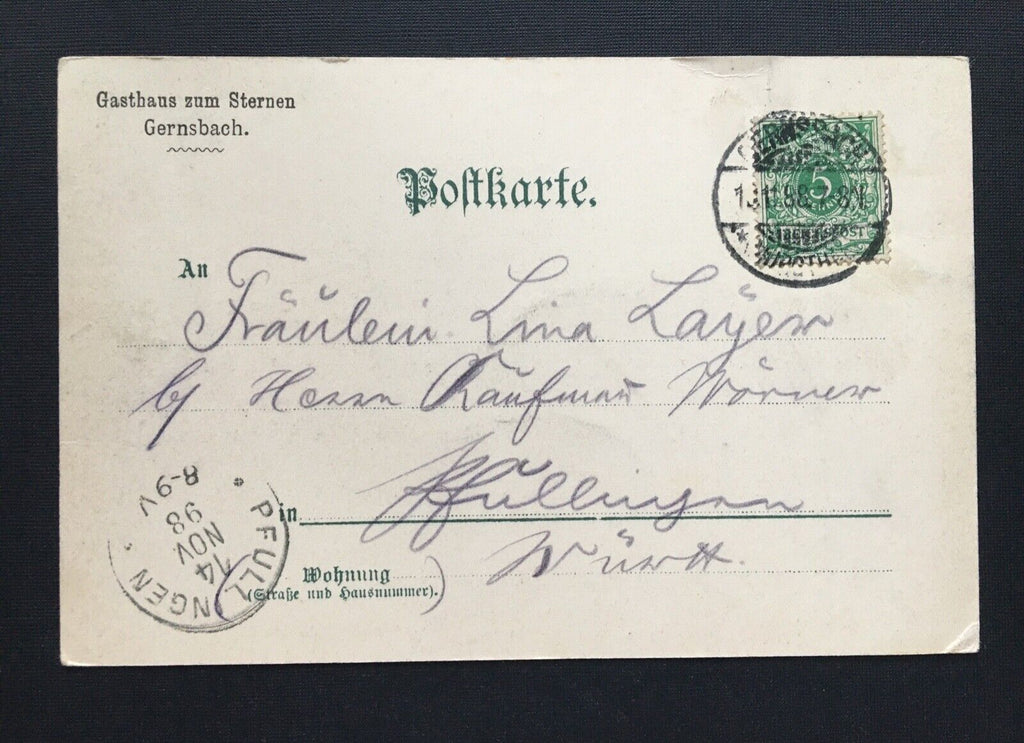 Gasthaus zum Sternen
Gernsbach.
Postkarte.
GERNSBACH
13.11.98.7-8N.
5
REICHSPOST
An Fräulein Lina Layer
b/ Herrn Kaufmann Wörner
in Pfullingen
Württ.
Wohnung
(Straße und Hausnummer).
PFULLINGEN
14
NOV
98
8-9V